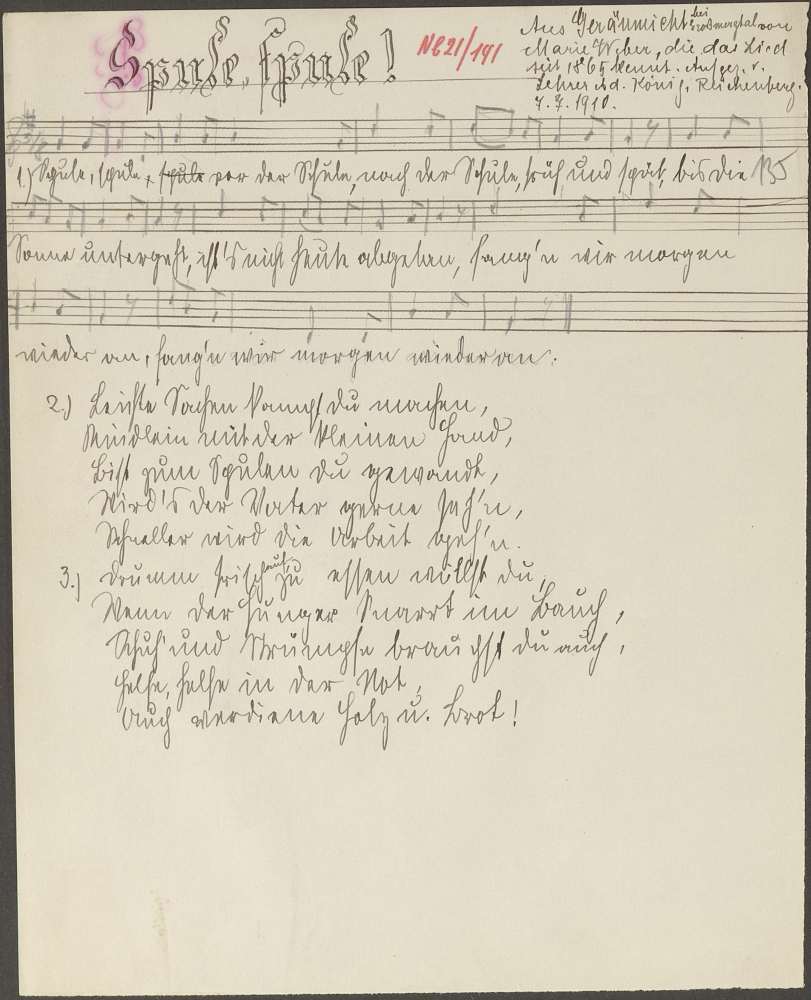 Spule, spule!
NE21/191
Aus Geräumicht bei Grossmergtal von
Marie Weber, die das Lied
seit 1865 kennt. Aufgez. v.
Lehrer Ad. König, Reichenberg.
7. 7. 1910.
3/8
1.) Spule, spule, spule vor der Schule, nach der Schule, früh und spät, bis die
Sonne untergeht, ist's nicht heute abgetan, fang'n wir morgen
wieder an, fang'n wir morgen wieder an.
2.) Leichte Sachen kannst du machen,
Kindlein mit der kleinen Hand,
Bist zum Spulen du gewandt,
Wird's der Vater gerne seh'n,
Schneller wird die Arbeit geh'n.
3.) Drumm frisch auf zu essen willst du,
Wenn der Hunger knarrt im Bauch,
Schuh' und Strümpfe brauchst du auch,
Helfe, helfe in der Not,
Auch verdiene Holz u. Brot!